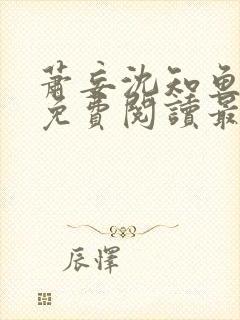 蕭妄沈知魚
免費閱讀最
辰懌